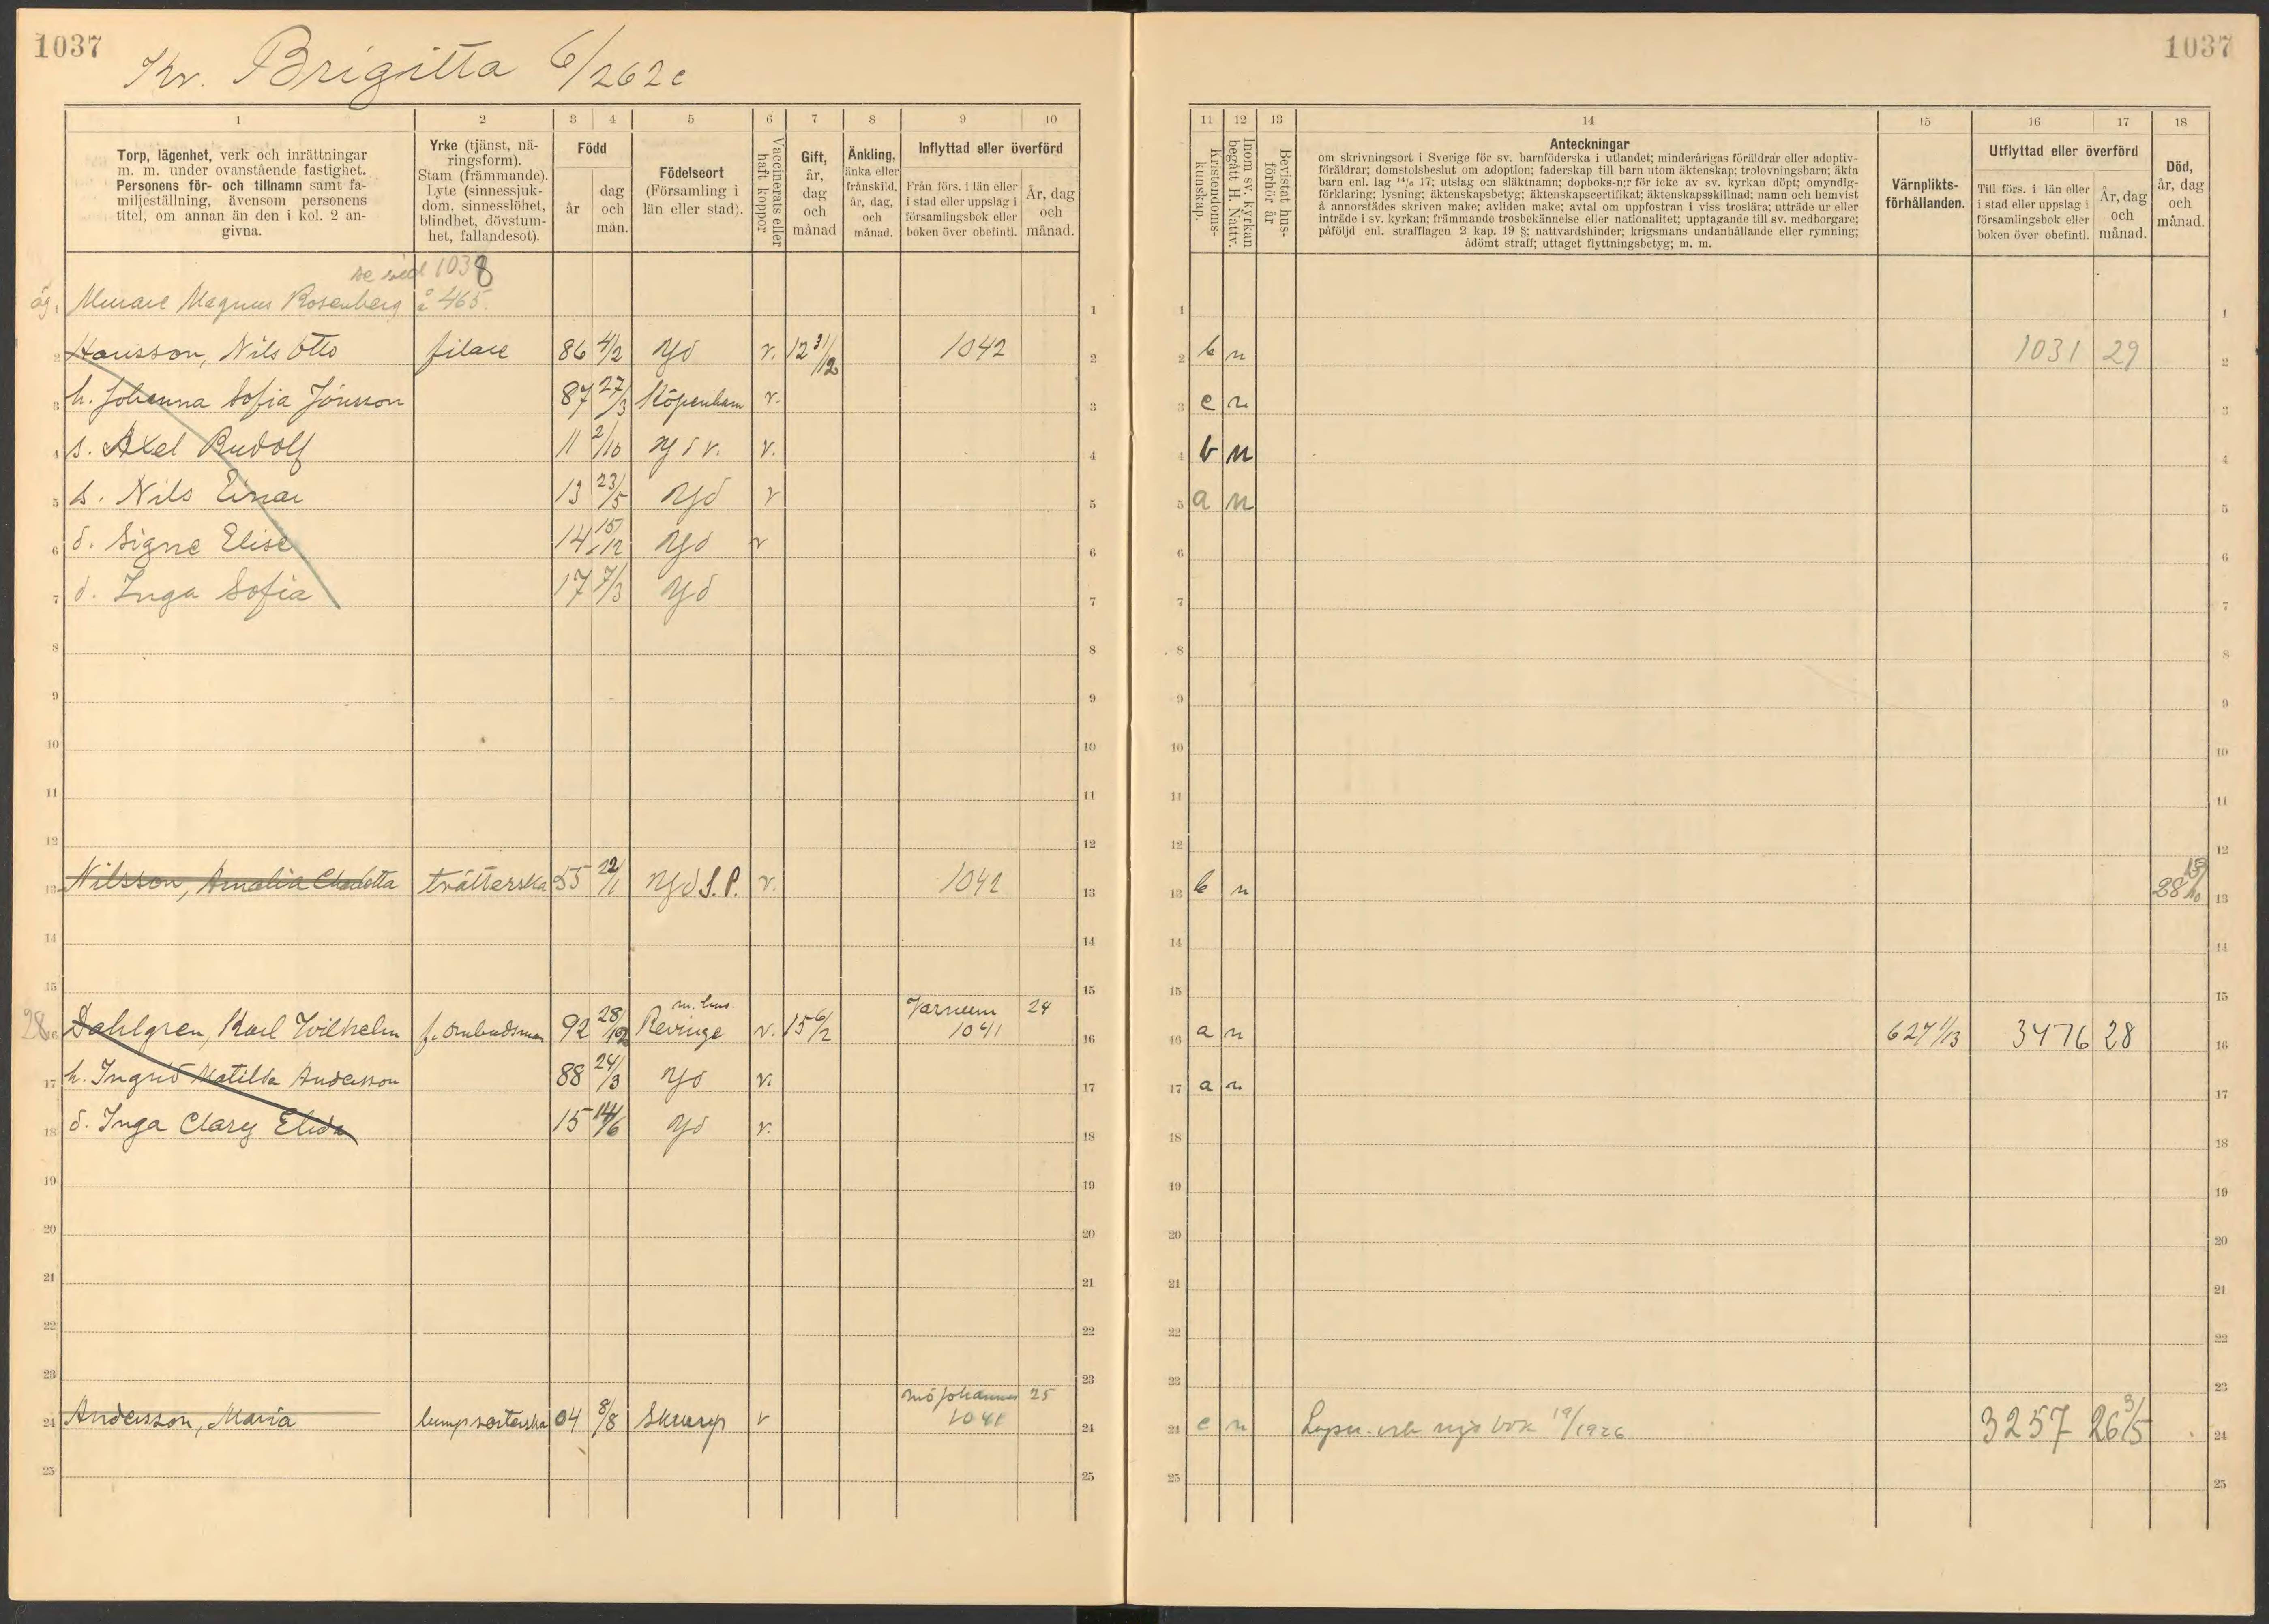 1037
Kv. Brigitta 6/262c
1 2 3 4 5 6 7 8 9 10
Torp, lägenhet, verk och inrättningar
m. m. under ovanstående fastighet.
Personens för- och tillnamn samt fa-
miljeställning, ävensom personens
titel, om annan än den i kol. 2 an-
givna.
Yrke (tjänst, nä-
ringsform).
Stam (främmande).
Lyte (sinnessjuk-
dom, sinnesslöhet,
blindhet, dövstum-
het, fallandesot).
Född
år
dag
och
mån.
Födelseort
(Församling i
län eller stad).
Vaccinerats eller
haft koppor
Gift,
år,
dag
och
månad
Änkling,
änka eller
frånskild,
år, dag,
och
månad.
Inflyttad eller överförd
Från förs. i län eller
i stad eller uppslag i
församlingsbok eller
boken över obefintl.
År, dag
och
månad.
se sid 1038
äg. 1 Murare Magnus Rosenberg å 465. 1
2 Hansson, Nils Otto filare 86 4/2 Yd v. 12 31/12 1042 2
3 h. Johanna Sofia Jönsson 87 27/3 Köpenhamn v. 3
4 s. Axel Rudolf 11 2/10 Yd v. v. 4
5 s. Nils Einar 13 23/5 Yd v 5
6 d. Signe Elise 14 15/12 Yd v 6
7 d. Inga Sofia 17 7/3 Yd 7
8 8
9 9
10 10
11 11
12 12
13 Nilsson, Amalia Charlotta tvätterska 55 22/1 Yd S.P. v. 1042 13
14 14
15 15
m. hus. Varnum 24
28 16 Dahlgren, Karl Vilhelm f. ombudsman 92 28/12 Revinge v. 15 6/2 1041 16
17 h. Ingrid Matilda Andersson 88 24/3 Yd v. 17
18 d. Inga Clary Elida 15 14/6 Yd v. 18
19 19
20 20
21 21
22 22
23 23
Mö Johannes 25
24 Andersson, Maria lumpsorterska 04 8/8 Skurup v 1041 24
25 25
1037
11 12 13 14 15 16 17 18
Kristendoms-
kunskap.
Inom sv. kyrkan
begått H. Nattv.
Bevistat hus-
förhör år
Anteckningar
om skrivningsort i Sverige för sv. barnföderska i utlandet; minderårigas föräldrar eller adoptiv-
föräldrar; domstolsbeslut om adoption; faderskap till barn utom äktenskap; trolovningsbarn; äkta
barn enl. lag 14/6 17; utslag om släktnamn; dopboks-n:r för icke av sv. kyrkan döpt; omyndig-
förklaring; lysning; äktenskapsbetyg; äktenskapscertifikat; äktenskapsskillnad; namn och hemvist
å annorstädes skriven make; avliden make; avtal om uppfostran i viss troslära; utträde ur eller
inträde i sv. kyrkan; främmande trosbekännelse eller nationalitet; upptagande till sv. medborgare;
påföljd enl. strafflagen 2 kap. 19 §; nattvardshinder; krigsmans undanhållande eller rymning;
ådömt straff; uttaget flyttningsbetyg; m. m.
Värnplikts-
förhållanden.
Utflyttad eller överförd
Till förs. i län eller
i stad eller uppslag i
församlingsbok eller
boken över obefintl.
År, dag
och
månad.
Död,
år, dag
och
månad.
1 1
2 b n 1031 29 2
3 c n 3
4 b n 4
5 a n 5
6 6
7 7
8 8
9 9
10 10
11 11
12 12
13 b n 28 15/10 13
14 14
15 15
16 a n 627 1/13 3476 28 16
17 a n 17
18 18
19 19
20 20
21 21
22 22
23 23
24 c n 19/1926 3257 26 3/5 24
25 25